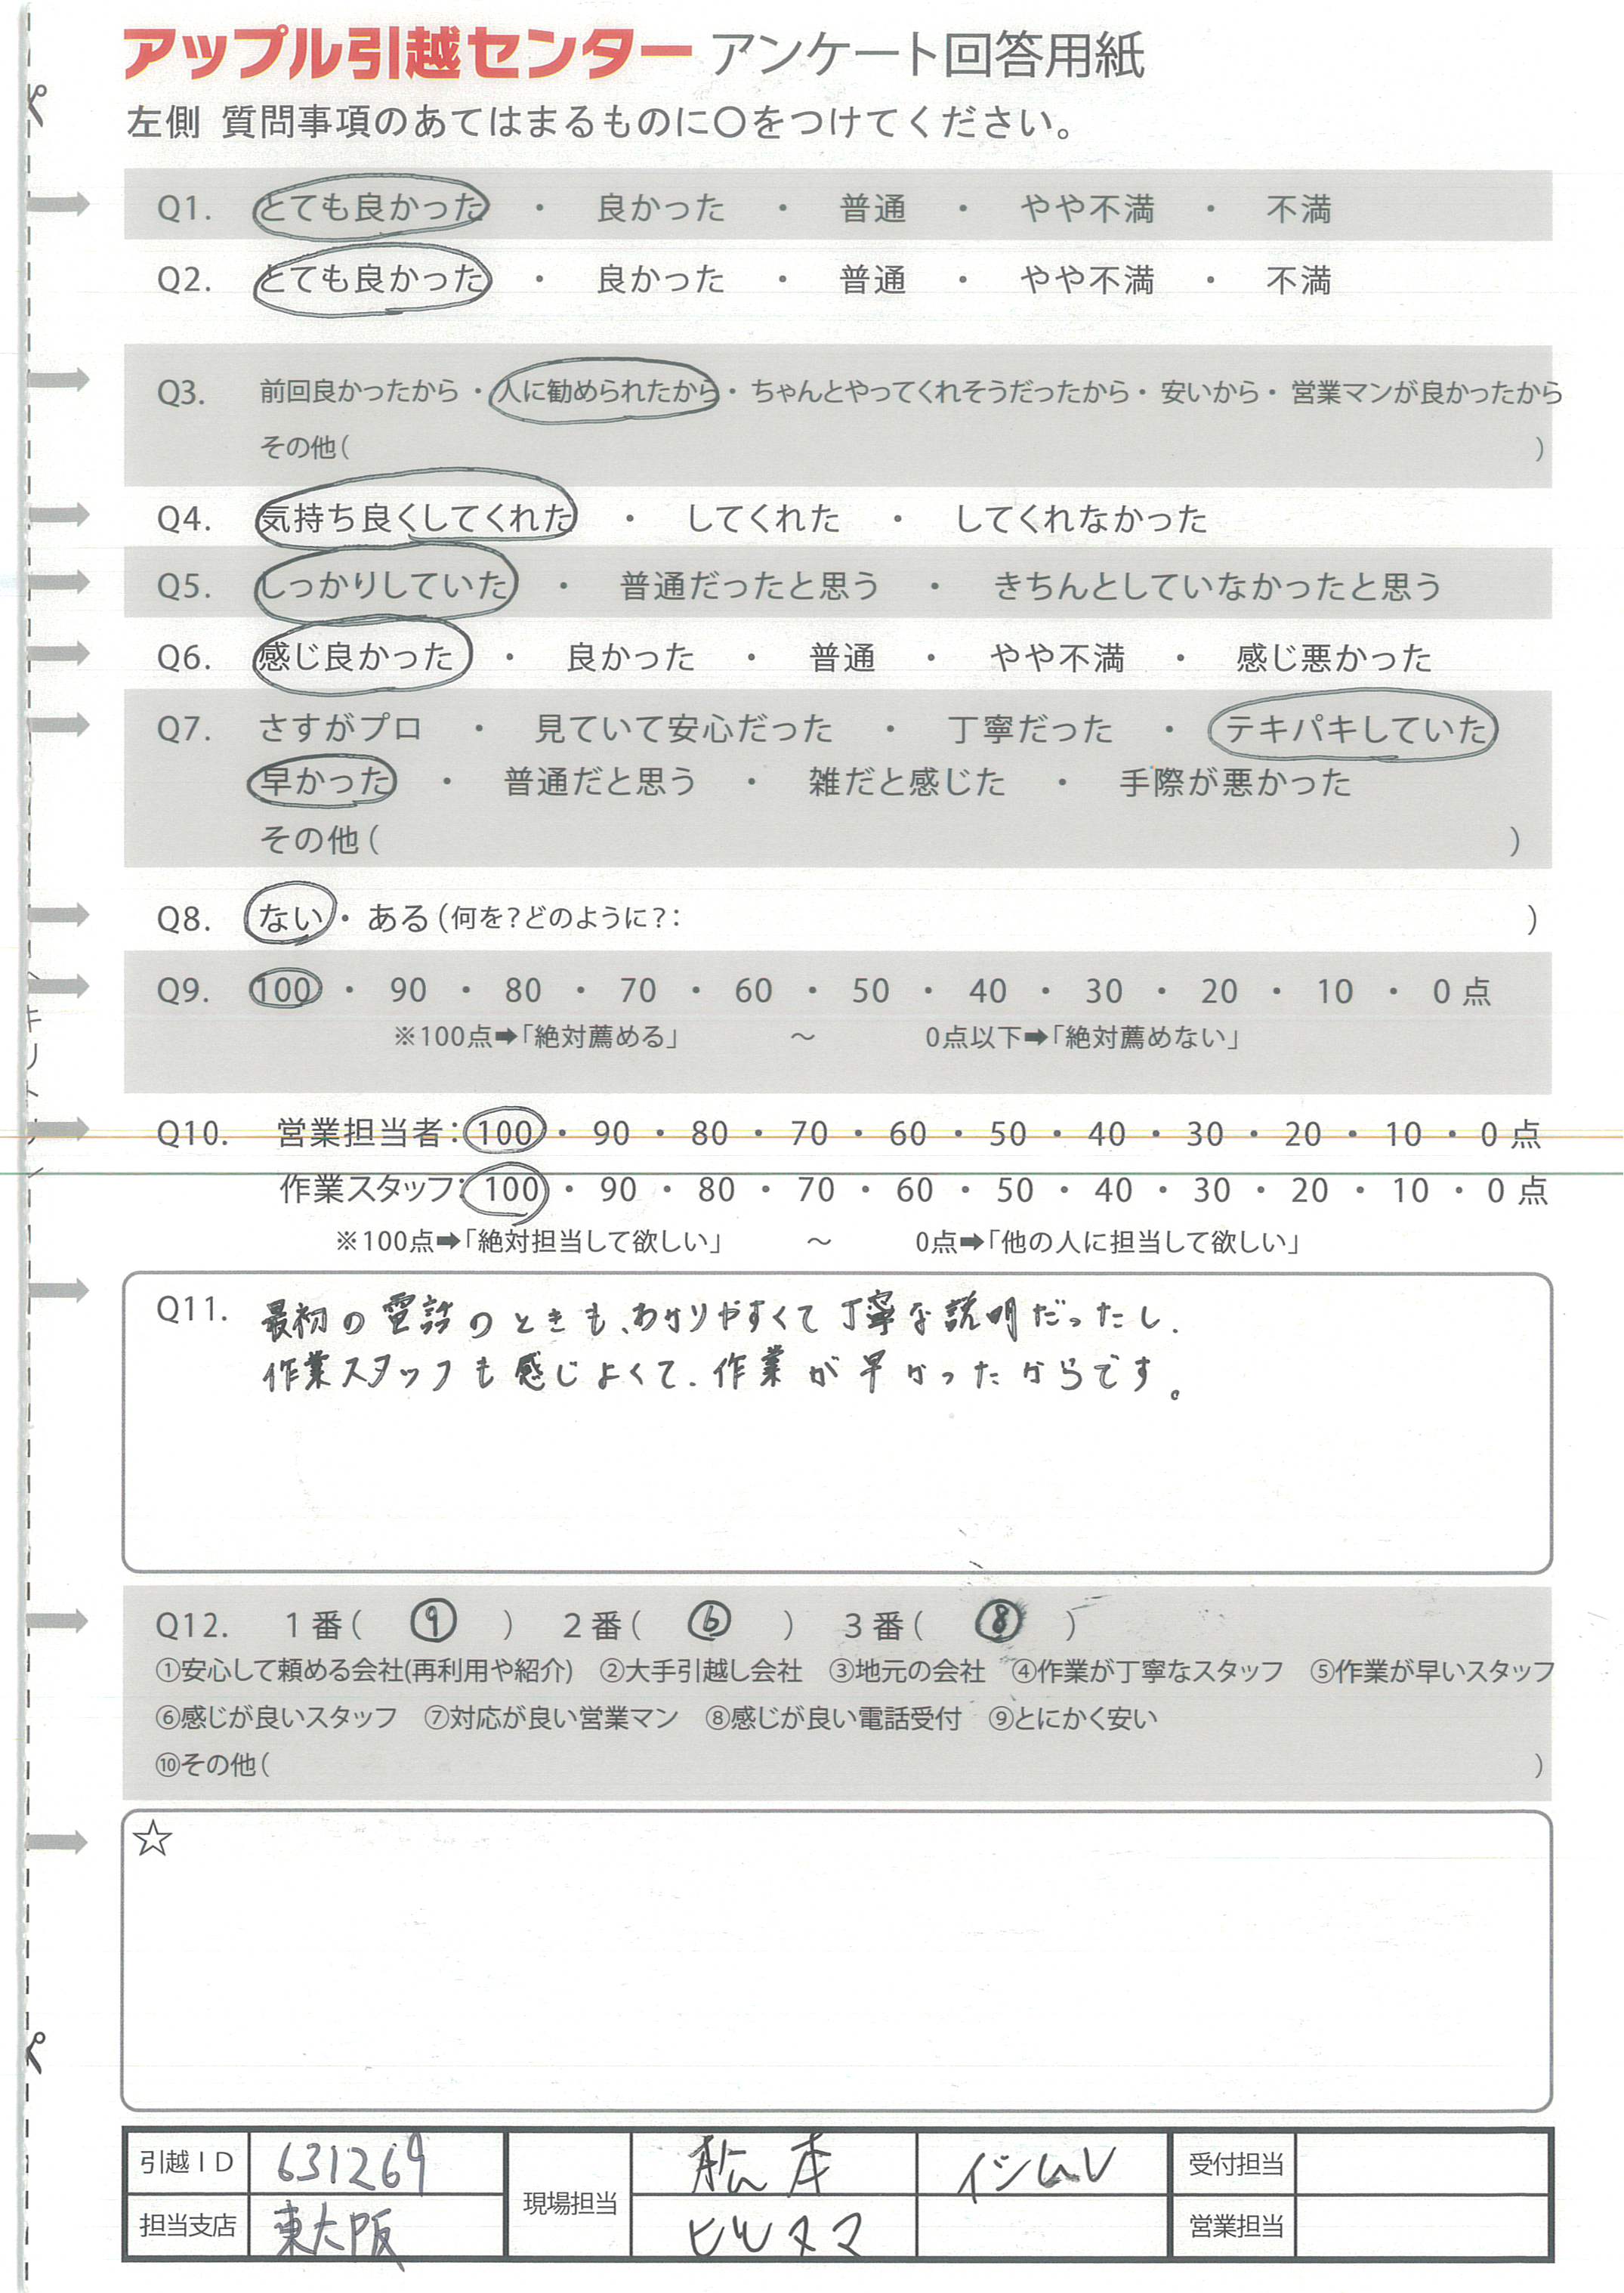 アップル引越センター アンケート回答用紙
左側 質問事項のあてはまるものに〇をつけてください。
Q1. とても良かった ・ 良かった ・ 普通 ・ やや不満 ・ 不満
Q2. とても良かった ・ 良かった ・ 普通 ・ やや不満 ・ 不満
Q3. 前回良かったから ・ 人に勧められたから ・ ちゃんとやってくれそうだったから ・ 安いから ・ 営業マンが良かったから
その他( )
Q4. 気持ち良くしてくれた ・ してくれた ・ してくれなかった
Q5. しっかりしていた ・ 普通だったと思う ・ きちんとしていなかったと思う
Q6. 感じ良かった ・ 良かった ・ 普通 ・ やや不満 ・ 感じ悪かった
Q7. さすがプロ ・ 見ていて安心だった ・ 丁寧だった ・ テキパキしていた
早かった ・ 普通だと思う ・ 雑だと感じた ・ 手際が悪かった
その他( )
Q8. ない ・ ある(何を?どのように?: )
Q9. 100 ・ 90 ・ 80 ・ 70 ・ 60 ・ 50 ・ 40 ・ 30 ・ 20 ・ 10 ・ 0 点
※100点➡「絶対薦める」 ～ 0点以下➡「絶対薦めない」
Q10. 営業担当者: 100 ・ 90 ・ 80 ・ 70 ・ 60 ・ 50 ・ 40 ・ 30 ・ 20 ・ 10 ・ 0 点
作業スタッフ: 100 ・ 90 ・ 80 ・ 70 ・ 60 ・ 50 ・ 40 ・ 30 ・ 20 ・ 10 ・ 0 点
※100点➡「絶対担当して欲しい」 ～ 0点➡「他の人に担当して欲しい」
Q11. 最初の電話のときも、わかりやすくて丁寧な説明だったし、
作業スタッフも感じよくて、作業が早かったからです。
Q12. 1番( ⑨ ) 2番( ⑥ ) 3番( ⑧ )
①安心して頼める会社(再利用や紹介) ②大手引越し会社 ③地元の会社 ④作業が丁寧なスタッフ ⑤作業が早いスタッフ
⑥感じが良いスタッフ ⑦対応が良い営業マン ⑧感じが良い電話受付 ⑨とにかく安い
⑩その他( )
☆
引越ID 631269 現場担当 松本 イシムレ 受付担当
担当支店 東大阪 ヒルヌマ 営業担当